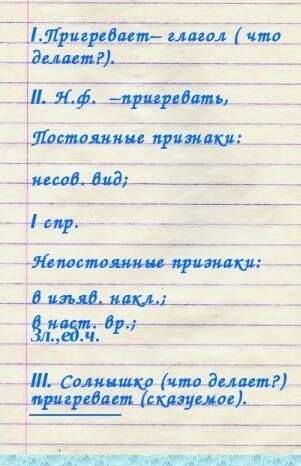 I.Пригревает– глагол ( что
делает?).
II. Н.ф. –пригревать,
Постоянные признаки:
несов. вид;
I спр.
Непостоянные признаки:
в изъяв. накл.;
в наст. вр.;
3л.,ед.ч.
III. Солнышко (что делает?)
пригревает (сказуемое).